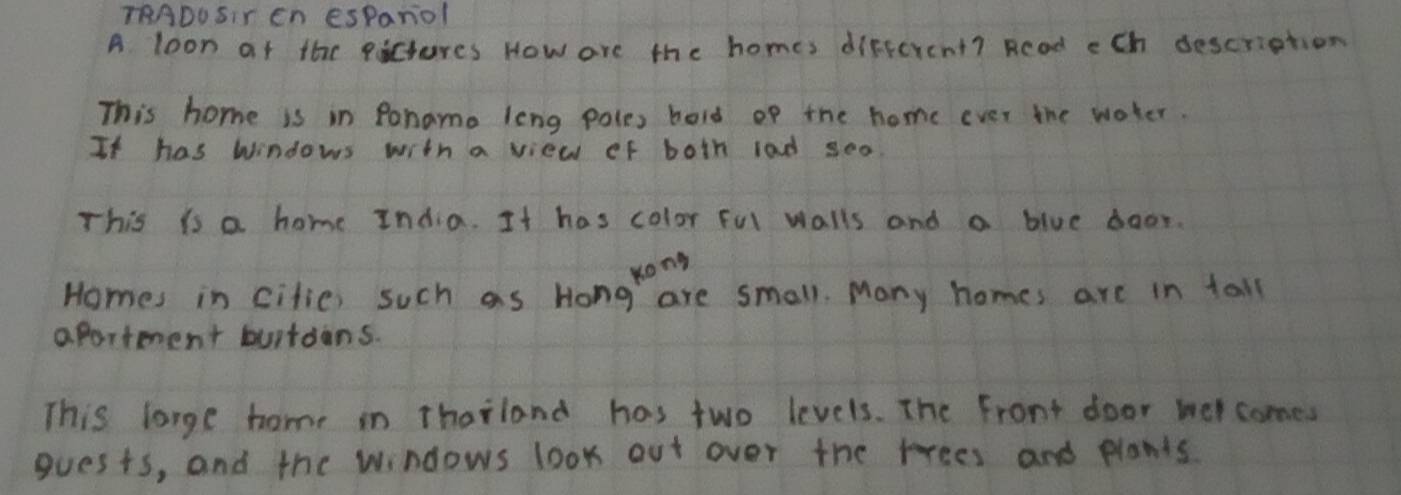 TRADUSIR en español
A loon at the pictures How are the homes different? Read ech description
This home is in Panama leng poles hold op the home cver the water.
It has windows with a view ef both lad sea.
This is a home India. It has color ful walls and a blue door.
Homes in cities such as Hong Kong are small. Many homes are in tall
apartment buitdans.
This large home in Thailand has two levels. The front door wel comes
guests, and the windows look out over the trees and plants.